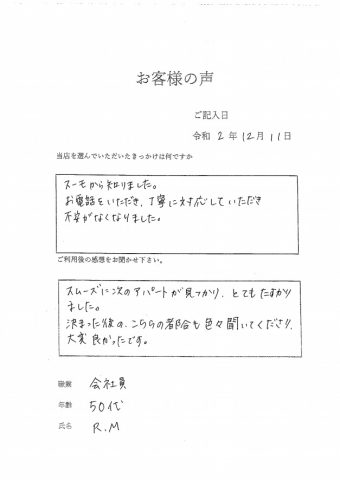 お客様の声
ご記入日
令和 2 年 12 月 11 日
当店を選んでいただいたきっかけは何ですか
スーモから知りました。
お電話をいただき、丁寧に対応していただき
不安がなくなりました。
ご利用後の感想をお聞かせ下さい。
スムーズに次のアパートが見つかり、とてもたすかり
ました。
決まった後の、こちらの都合も色々聞いてくださり、
大変良かったです。
職業 会社員
年齢 50代
氏名 R.M